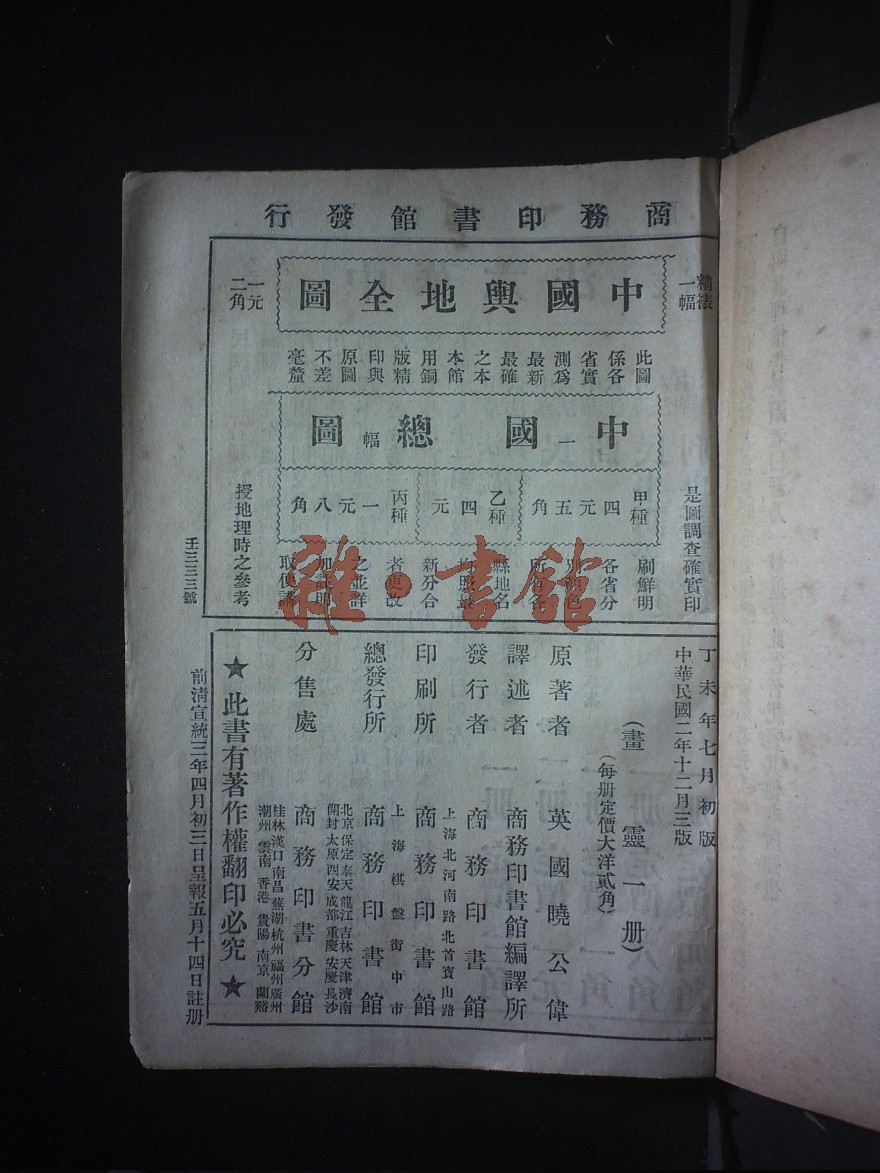 商務印書館發行
精裱一幅
中國輿地全圖
一元二角
此圖係各省實測爲最新最確之本本館用銅版精印與原圖不差毫釐
中國總圖
一幅
甲種四元五角
乙種四元
丙種一元八角
是圖調查確實印
刷鮮明
各省分
別顏色
所有各
縣地名
均照最
新分合
者更改
之並詳
加註明
取便講
授地理時之參考
壬三三三號
丁未年七月初版
中華民國二年十二月三版
(畫靈一册)
(每册定價大洋貳角)
原著者 英國曉公偉
譯述者 商務印書館編譯所
發行者 商務印書館
上海北河南路北首寶山路
印刷所 商務印書館
上海棋盤街中市
總發行所 商務印書館
北京保定奉天龍江吉林天津濟南
開封太原西安成都重慶安慶長沙
分售處 商務印書分館
桂林漢口南昌蕪湖杭州福州廣州
潮州雲南香港貴陽南京蘭谿
★此書有著作權翻印必究★
前清宣統三年四月初三日呈報五月十四日註册
雜·書館